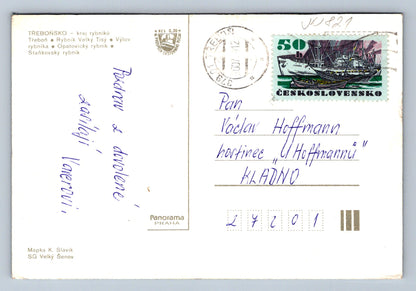 TŘEBOŇSKO – kraj rybníků
Třeboň • Rybník Velký Tisý • Výlov
rybníka • Opatovický rybník •
Staňkovský rybník
Pozdrav z dovolené
zasílají Vaverovi.
Panorama
PRAHA
Mapka K. Slavík
SG Velký Šenov
50
ČESKOSLOVENSKO
Pan
Václav Hoffmann
hostinec „u Hoffmannů"
KLADNO
27201